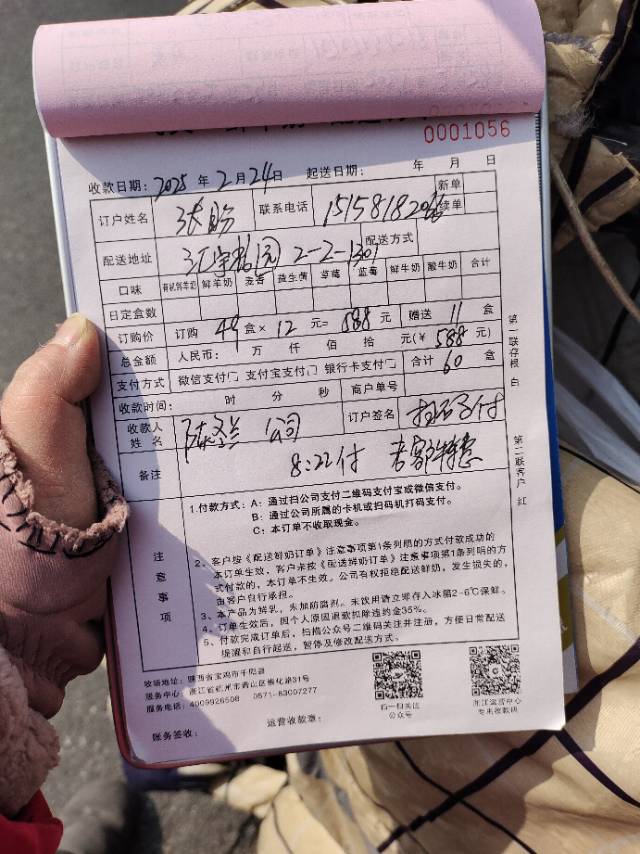 0001056
收款日期: 2025 年 2 月 24 日 起送日期: 年 月 日
订户姓名 联系电话 新单 续单
配送地址 2-2-1301 配送方式
口味 有机鲜羊奶 鲜羊奶 麦香 益生菌 草莓 蓝莓 鲜牛奶 酸牛奶 合计
日定盒数
订购价 订购 49 盒× 12 元= 588 元 赠送 11 盒
总金额 人民币: 万 仟 佰 拾 元(￥ 588 元)
支付方式 微信支付□ 支付宝支付□ 银行卡支付□ 合计 60 盒
收款时间: 时 分 秒 商户单号
收款人姓名 公司 订户签名
备注 8:22付 老客户特惠
第一联存根 白
第二联客户 红
注意事项
1.付款方式: A: 通过扫公司支付二维码支付宝或微信支付。
B: 通过公司所属的卡机或扫码机打码支付。
C: 本订单不收取现金。
2、客户按《配送鲜奶订单》注意事项第1条列明的方式付款成功的
本订单生效, 客户未按《配送鲜奶订单》注意事项第1条列明的方
式付款的, 本订单不生效。公司有权拒绝配送鲜奶, 发生损失的,
由客户自行承担。
3、本产品为鲜乳, 未加防腐剂。未饮用请立即存入冰箱2-6℃保鲜。
4、订单生效后, 因个人原因退款扣除违约金35%。
5、付款完成订单后, 扫描公众号二维码关注并注册, 方便日常配送
提醒和自行起送, 暂停及修改配送方式。
牧场地址: 陕西省宝鸡市千阳县
服务中心: 浙江省杭州市萧山区通化路31号
服务电话: 4009926508 0571-83007277
扫一扫关注
公众号
浙江运营中心
专用收款码
运营收款章:
账务签收: